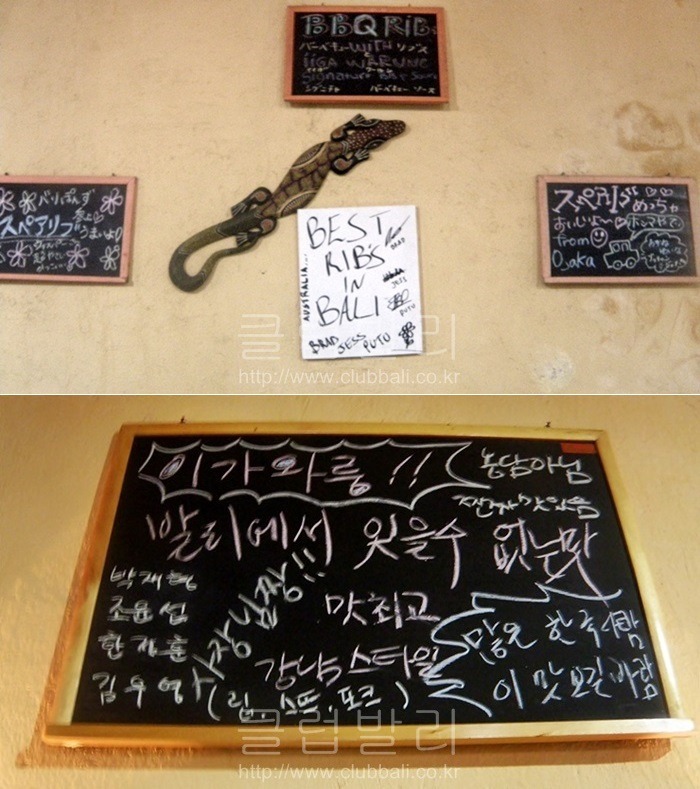 BBQ RIBs
バーベキュー WITH リブス
IIGA WARUNG
Signature BBQ Sauce
シグニチャ バーベキュー ソース
スペアリブ
うまいよ!
BEST
RIB'S
IN
BALI
AUSTRALIA...
BRAD
JESS
PUTU
BRAD JESS PUTU
スペアリブ めっちゃ
おいしいよ〜 ホンマやで
from
Osaka
클럽발리
http://www.clubbali.co.kr
이가와룽!!
농담아님
진짜 맛있음
발리에서 잊을수 없는맛
박재형
조윤섭
한재훈
김우영
사장님짱!!!
맛최고
강남스타일
(립.스프.포크)
많은 한국사람
이 맛보길바람
클럽발리
http://www.clubbali.co.kr